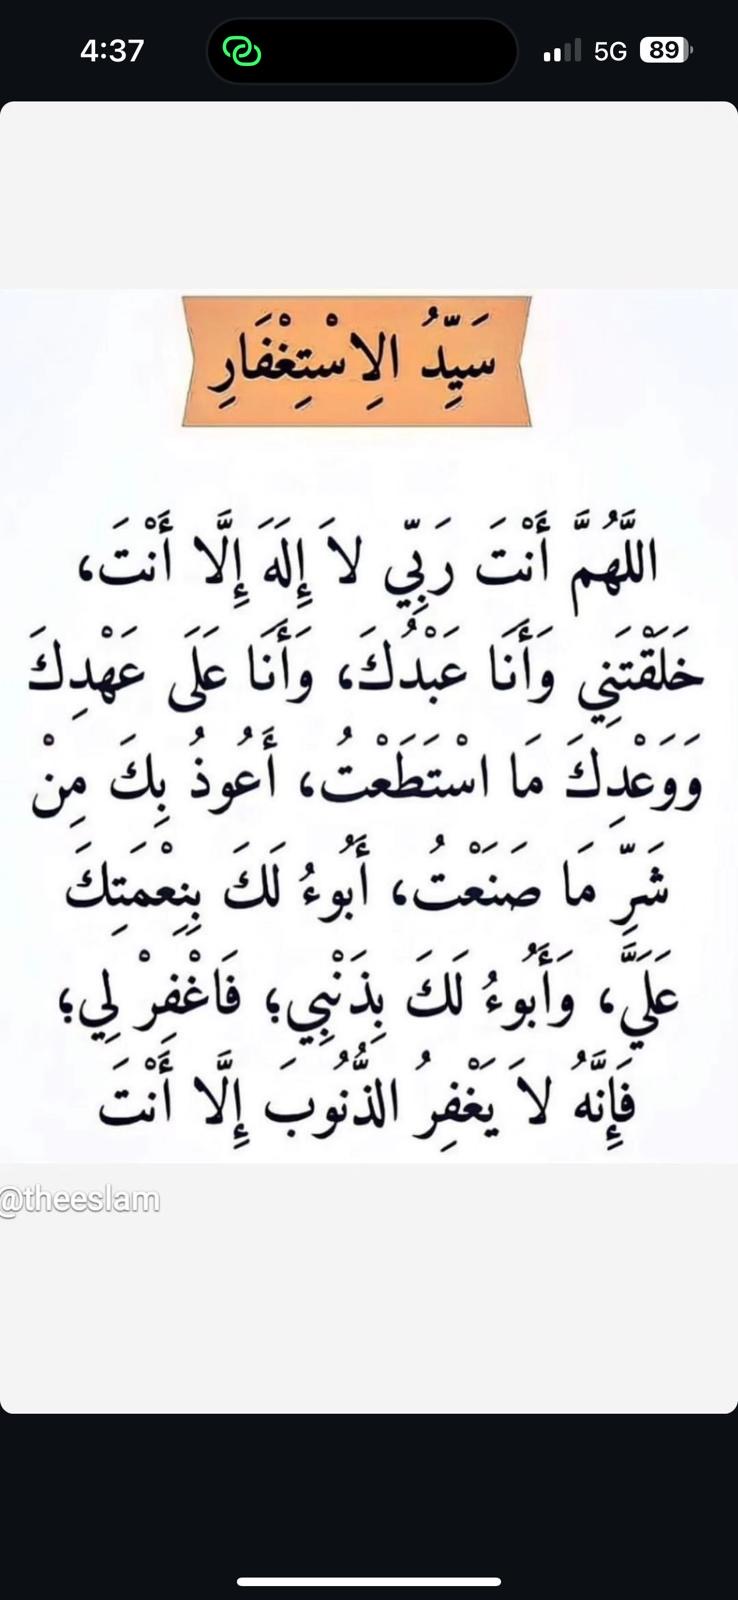 4:37
5G
89
سَيِّدُ الِاسْتِغْفَارِ
اللَّهُمَّ أَنْتَ رَبِّي لاَ إِلَهَ إِلَّا أَنْتَ،
خَلَقْتَنِي وَأَنَا عَبْدُكَ، وَأَنَا عَلَى عَهْدِكَ
وَوَعْدِكَ مَا اسْتَطَعْتُ، أَعُوذُ بِكَ مِنْ
شَرِّ مَا صَنَعْتُ، أَبُوءُ لَكَ بِنِعْمَتِكَ
عَلَيَّ، وَأَبُوءُ لَكَ بِذَنْبِي؛ فَاغْفِرْ لِي؛
فَإِنَّهُ لاَ يَغْفِرُ الذُّنُوبَ إِلَّا أَنْتَ
@theeslam